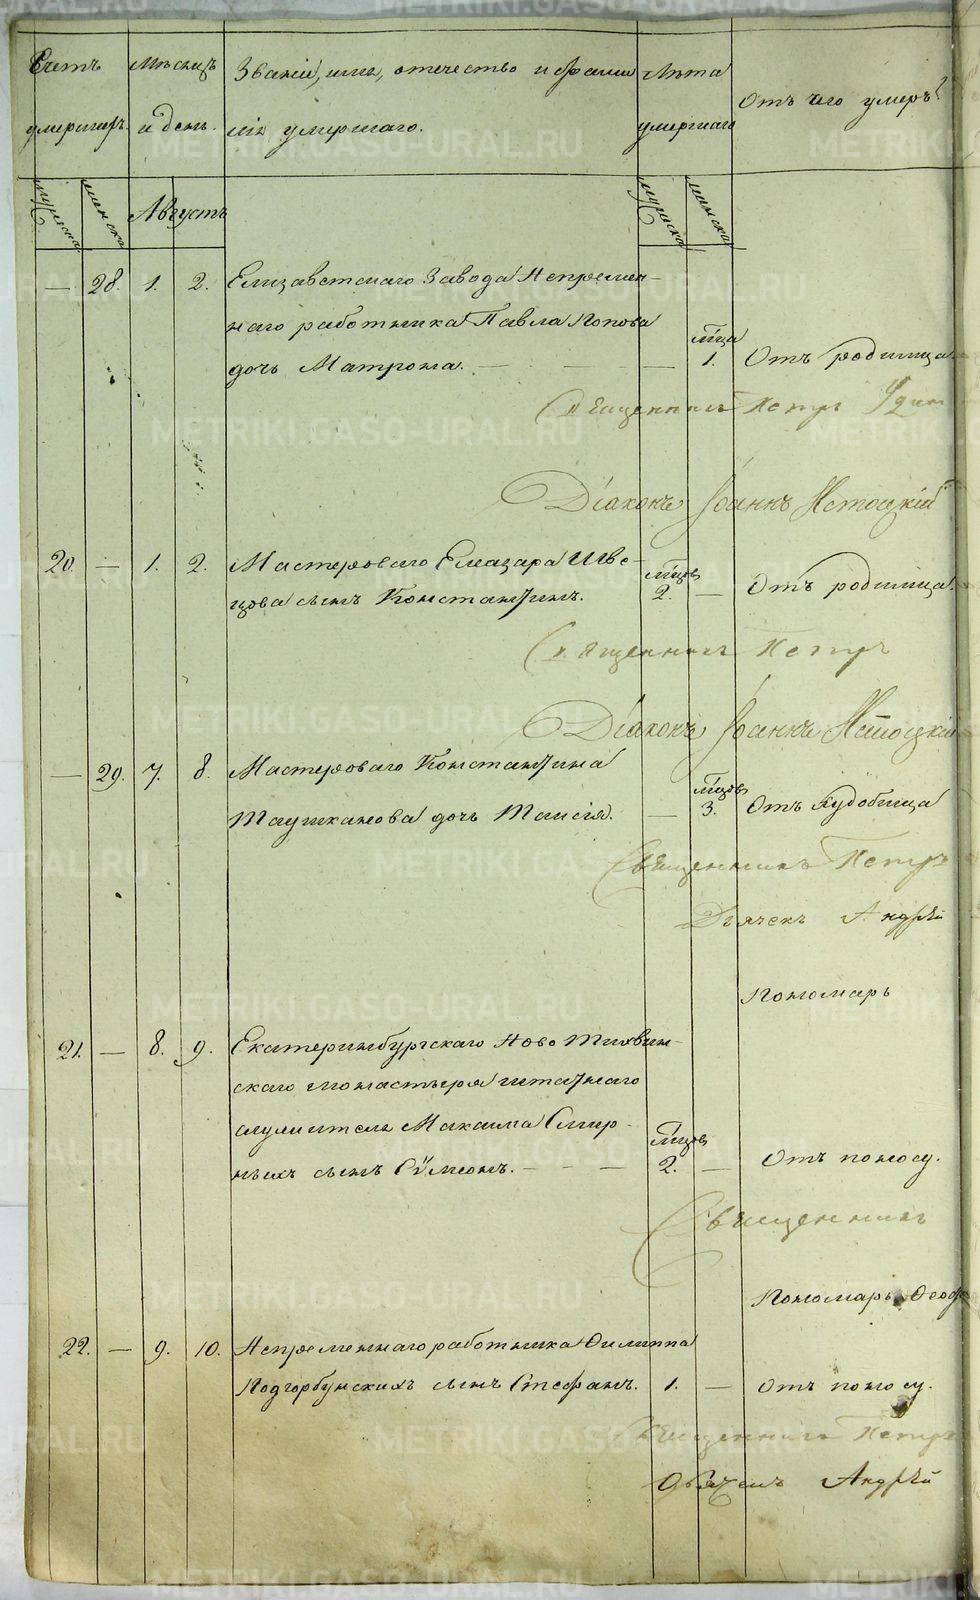 Счетъ Мѣсяцъ Званіе, имя, отечество и фами Лѣта Отъ чего умеръ?
умершихъ. и день. лія умершаго. умершаго
мужеска женска Августъ мужеска женска
— 28. 1. 2. Елизаветскаго Завода Непремен-
наго работника Павла Попова
дочь Матрона. — — мца 1. Отъ родимца.
Священникъ Петръ
Діаконъ Іоаннъ
20. — 1. 2. Мастероваго Елеазара Шве-
цова сынъ Константинъ. мцов 2. — Отъ родимца.
Священникъ Петръ
Діаконъ Іоаннъ
— 29. 7. 8. Мастероваго Константина
Таушканова дочь Таисія. — мцов 3. Отъ худобища
Священникъ Петръ
Дьячекъ Андрей
Пономарь
21. — 8. 9. Екатеринбургскаго Ново Тихвин-
скаго монастыря штатнаго
служителя Максима Смир-
ныхъ сынъ Сѵмеонъ. — — — мцов 2. — Отъ поносу.
Священникъ
Пономарь Ѳеоф
22. — 9. 10. Непременнаго работника Филиппа
Подгорбунскихъ сынъ Стефанъ. 1. — Отъ поносу.
Священникъ Петръ
Дьячекъ Андрей
METRIKI.GASO-URAL.RU